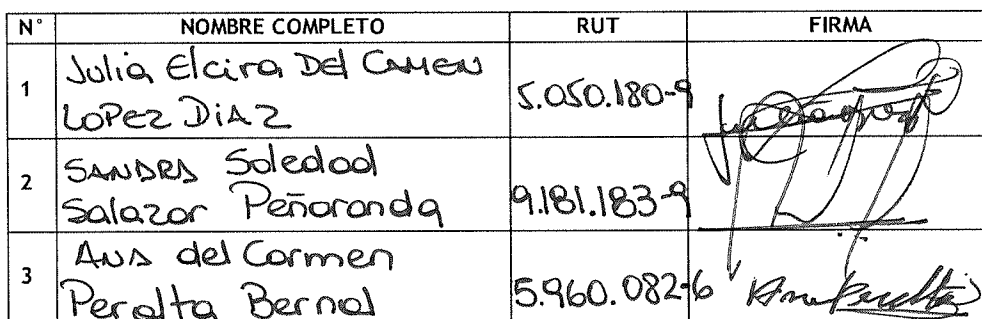 N° NOMBRE COMPLETO RUT FIRMA
1 Julia Elcira Del Carmen
Lopez Diaz 5.050.180-9
2 Sandra Soledad
Salazar Peñaranda 9.181.183-9
3 Ana del Carmen
Peralta Bernal 5.960.082-6 Ana Peralta